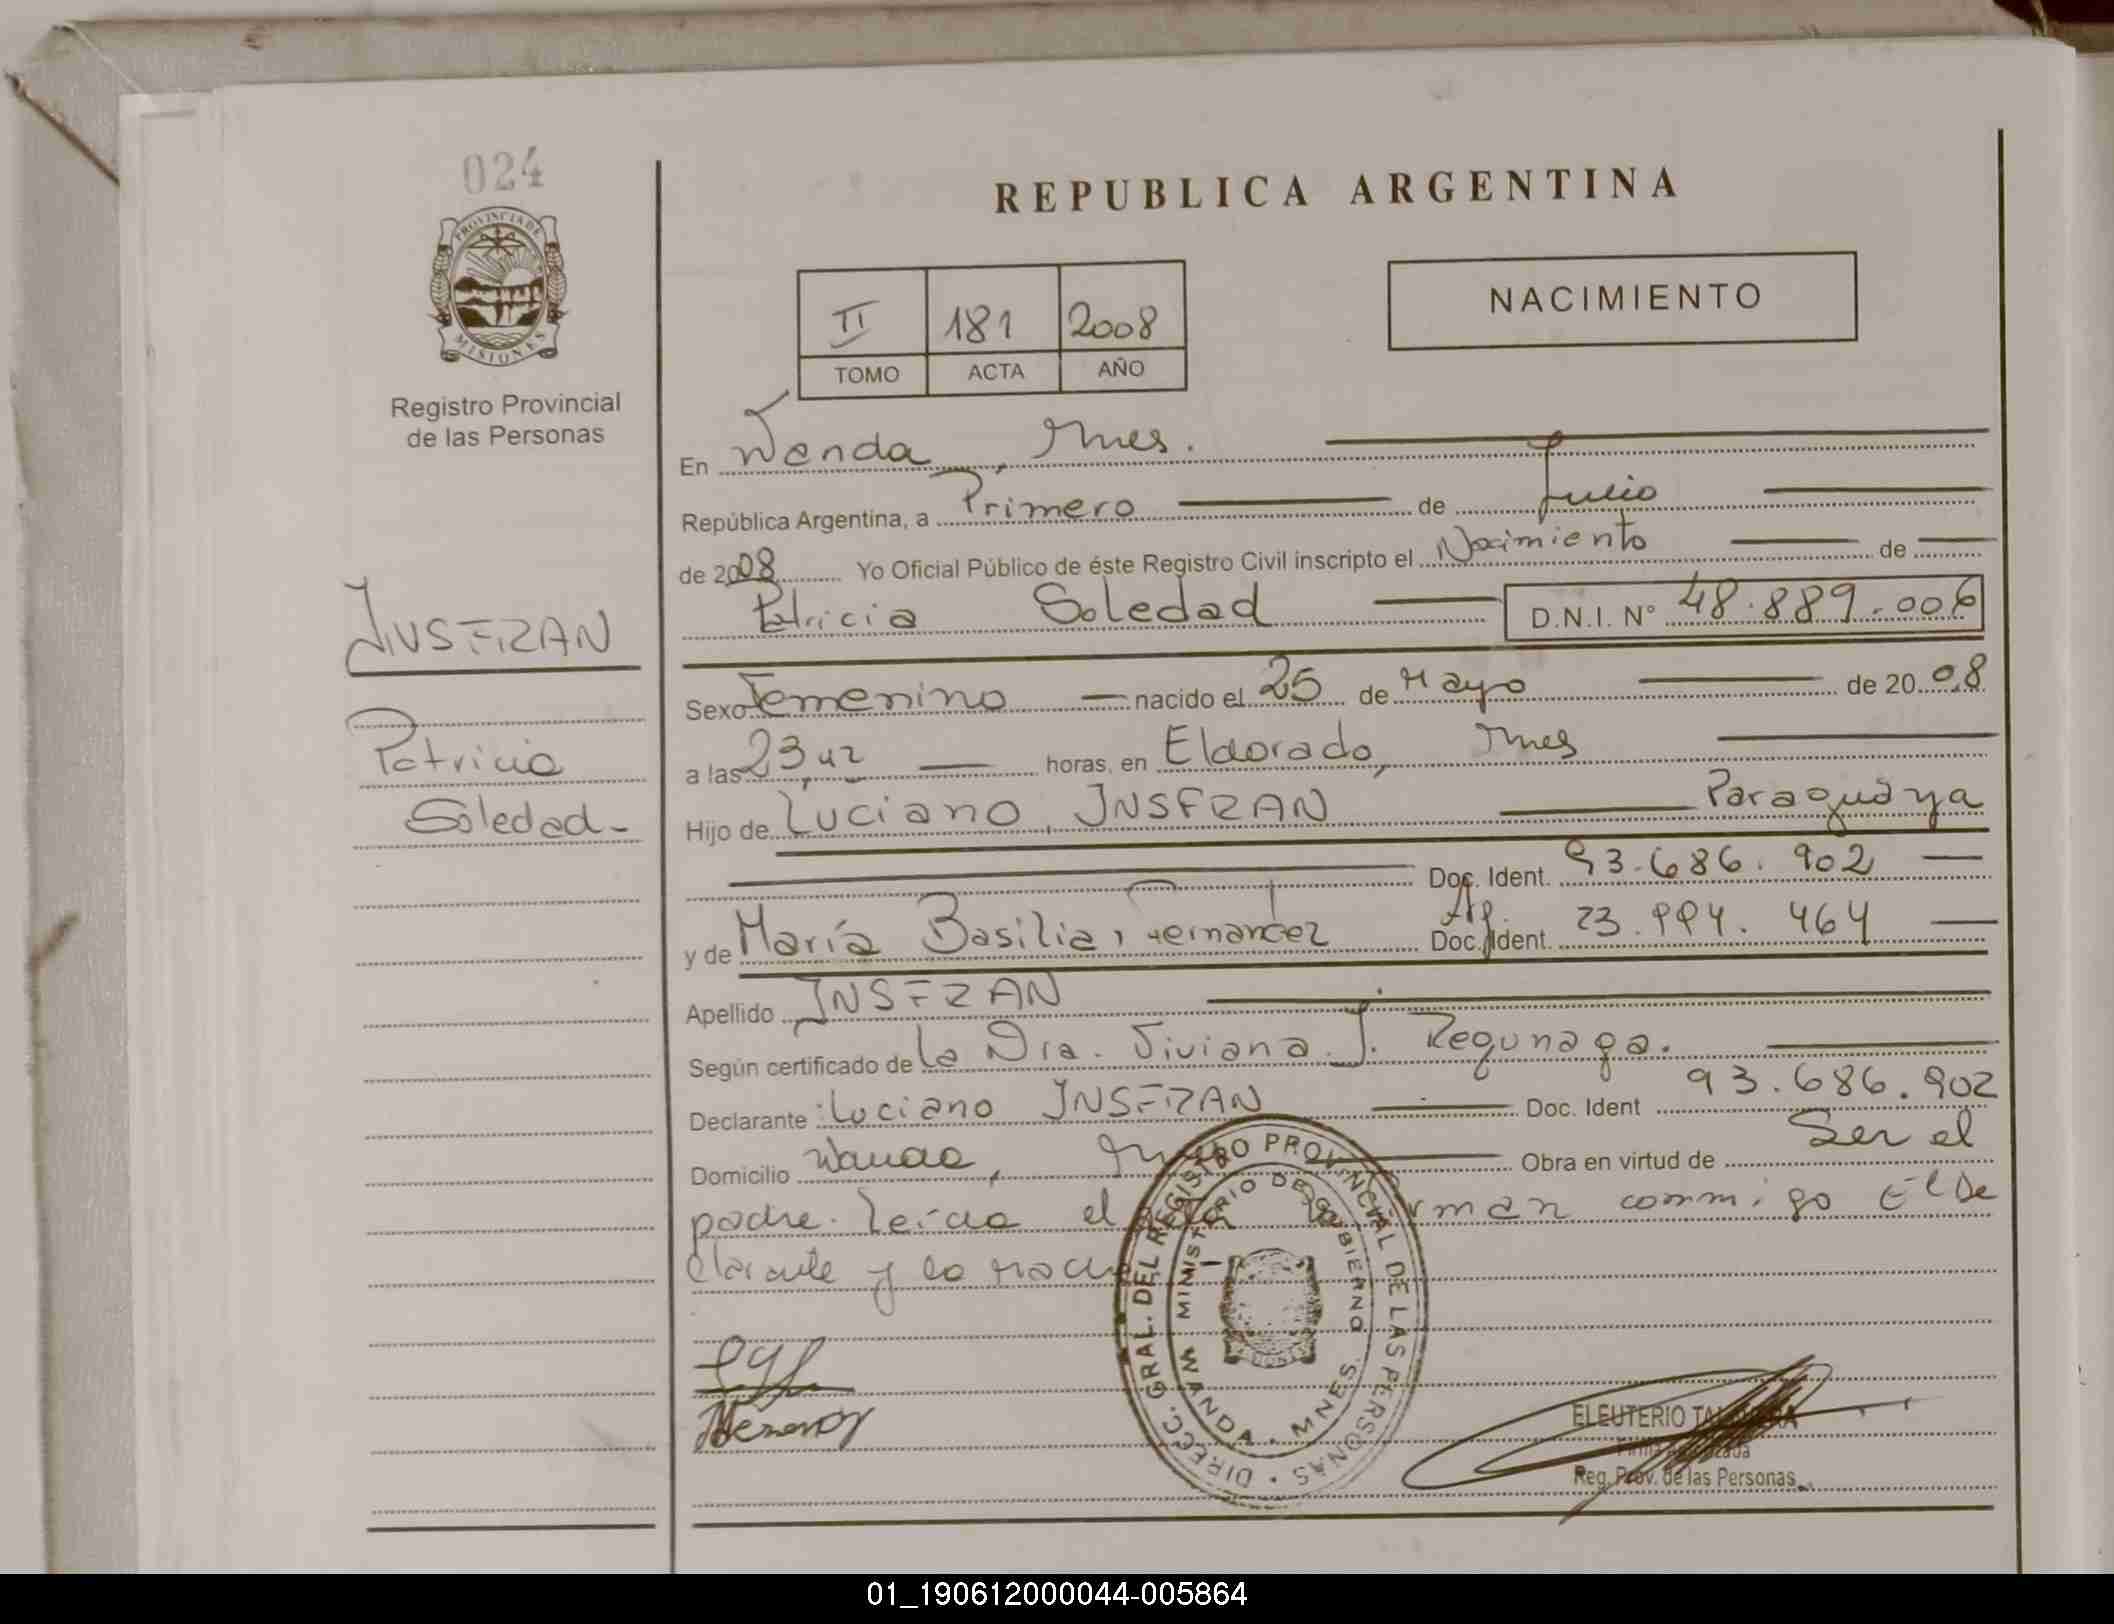 024
PROVINCIA DE
MISIONES
Registro Provincial
de las Personas
INSFRAN
Patricia
Soledad-
REPUBLICA ARGENTINA
II 181 2008
TOMO ACTA AÑO
NACIMIENTO
En Wanda, Mnes.
República Argentina, a Primero de Julio
de 2008 Yo Oficial Público de éste Registro Civil inscripto el Nacimiento de
Patricia Soledad D.N.I. N° 48.889.006
Sexo Femenino nacido el 25 de Mayo de 2008
a las 23,42 horas, en Eldorado, Mnes
Hijo de Luciano, INSFRAN Paraguaya
Doc. Ident. 93.686.902
y de María Basilia, Fernandez Ap. Doc. Ident. 464
Apellido INSFRAN
Según certificado de la Dra. Viviana J. Requnaga.
Declarante: Luciano INSFRAN Doc. Ident 93.686.902
Domicilio Wanda, Obra en virtud de Ser el
padre. Leída el firman conmigo El De
clarante y la
DIRECC. GRAL. DEL REGISTRO PROVINCIAL DE LAS PERSONAS
MINISTERIO DE GOBIERNO
WANDA - MNES.
ELEUTERIO
Firma Autorizada
Reg. Prov. de las Personas
01_190612000044-005864